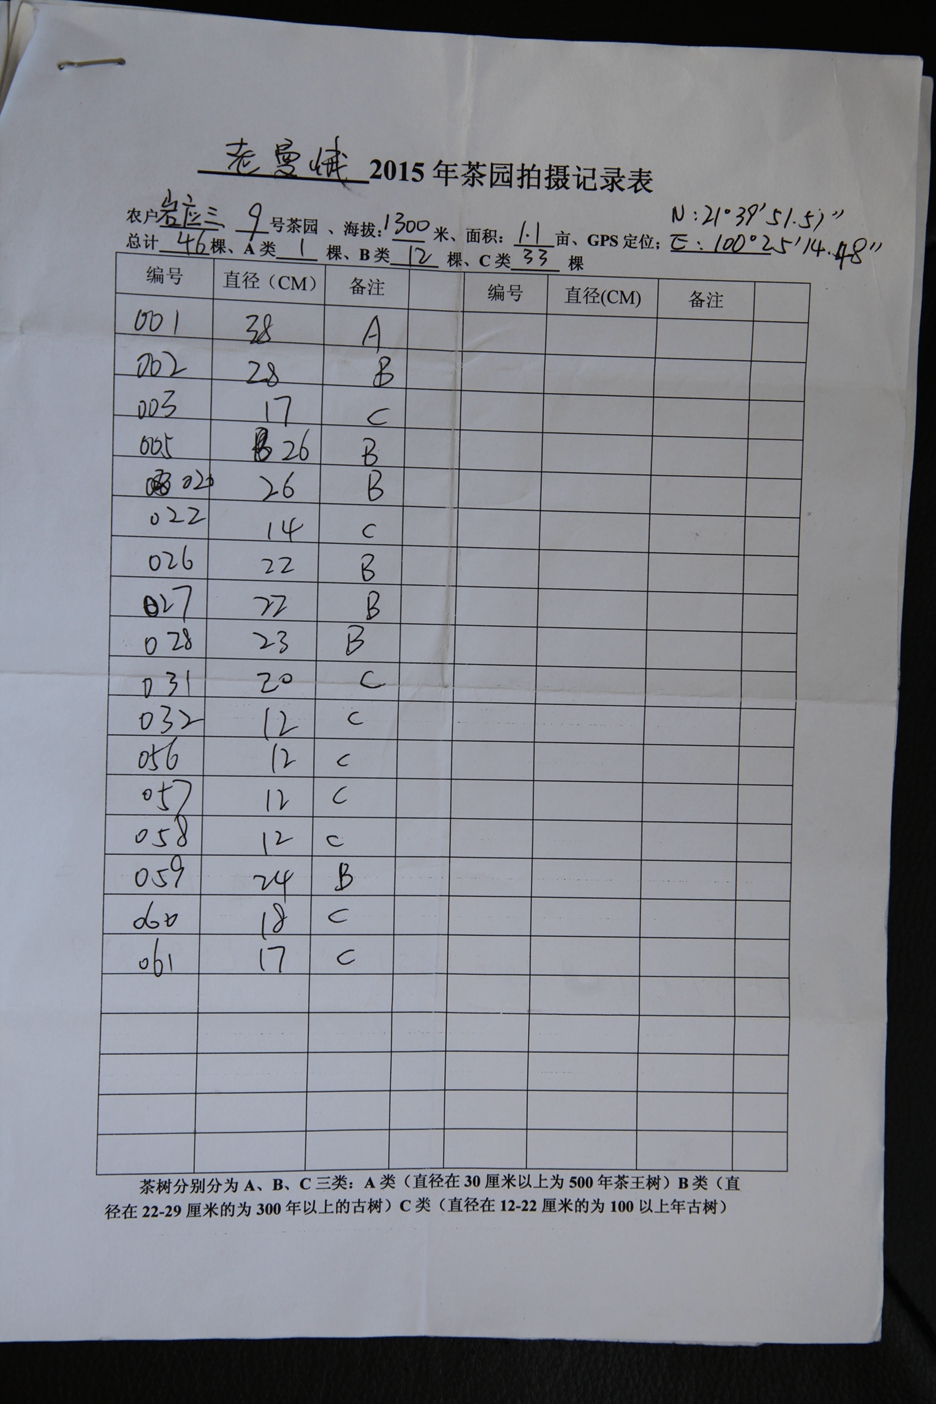 老曼峨 2015 年茶园拍摄记录表
N:21°39′51.51″
农户岩应三、9号茶园 、海拔:1300米、面积: 1.1 亩、GPS 定位; E:100°25′14.48″
总计 46 棵、A 类 1 棵、B 类 12 棵、C 类 33 棵
编号 直径（CM） 备注 编号 直径(CM) 备注
001 38 A
002 28 B
003 17 C
005 26 B
020 26 B
022 14 C
026 22 B
027 22 B
028 23 B
031 20 C
032 12 C
056 12 C
057 12 C
058 12 C
059 24 B
060 18 C
061 17 C
茶树分别分为 A、B、C 三类：A 类（直径在 30 厘米以上为 500 年茶王树）B 类（直
径在 22-29 厘米的为 300 年以上的古树）C 类（直径在 12-22 厘米的为 100 以上年古树）